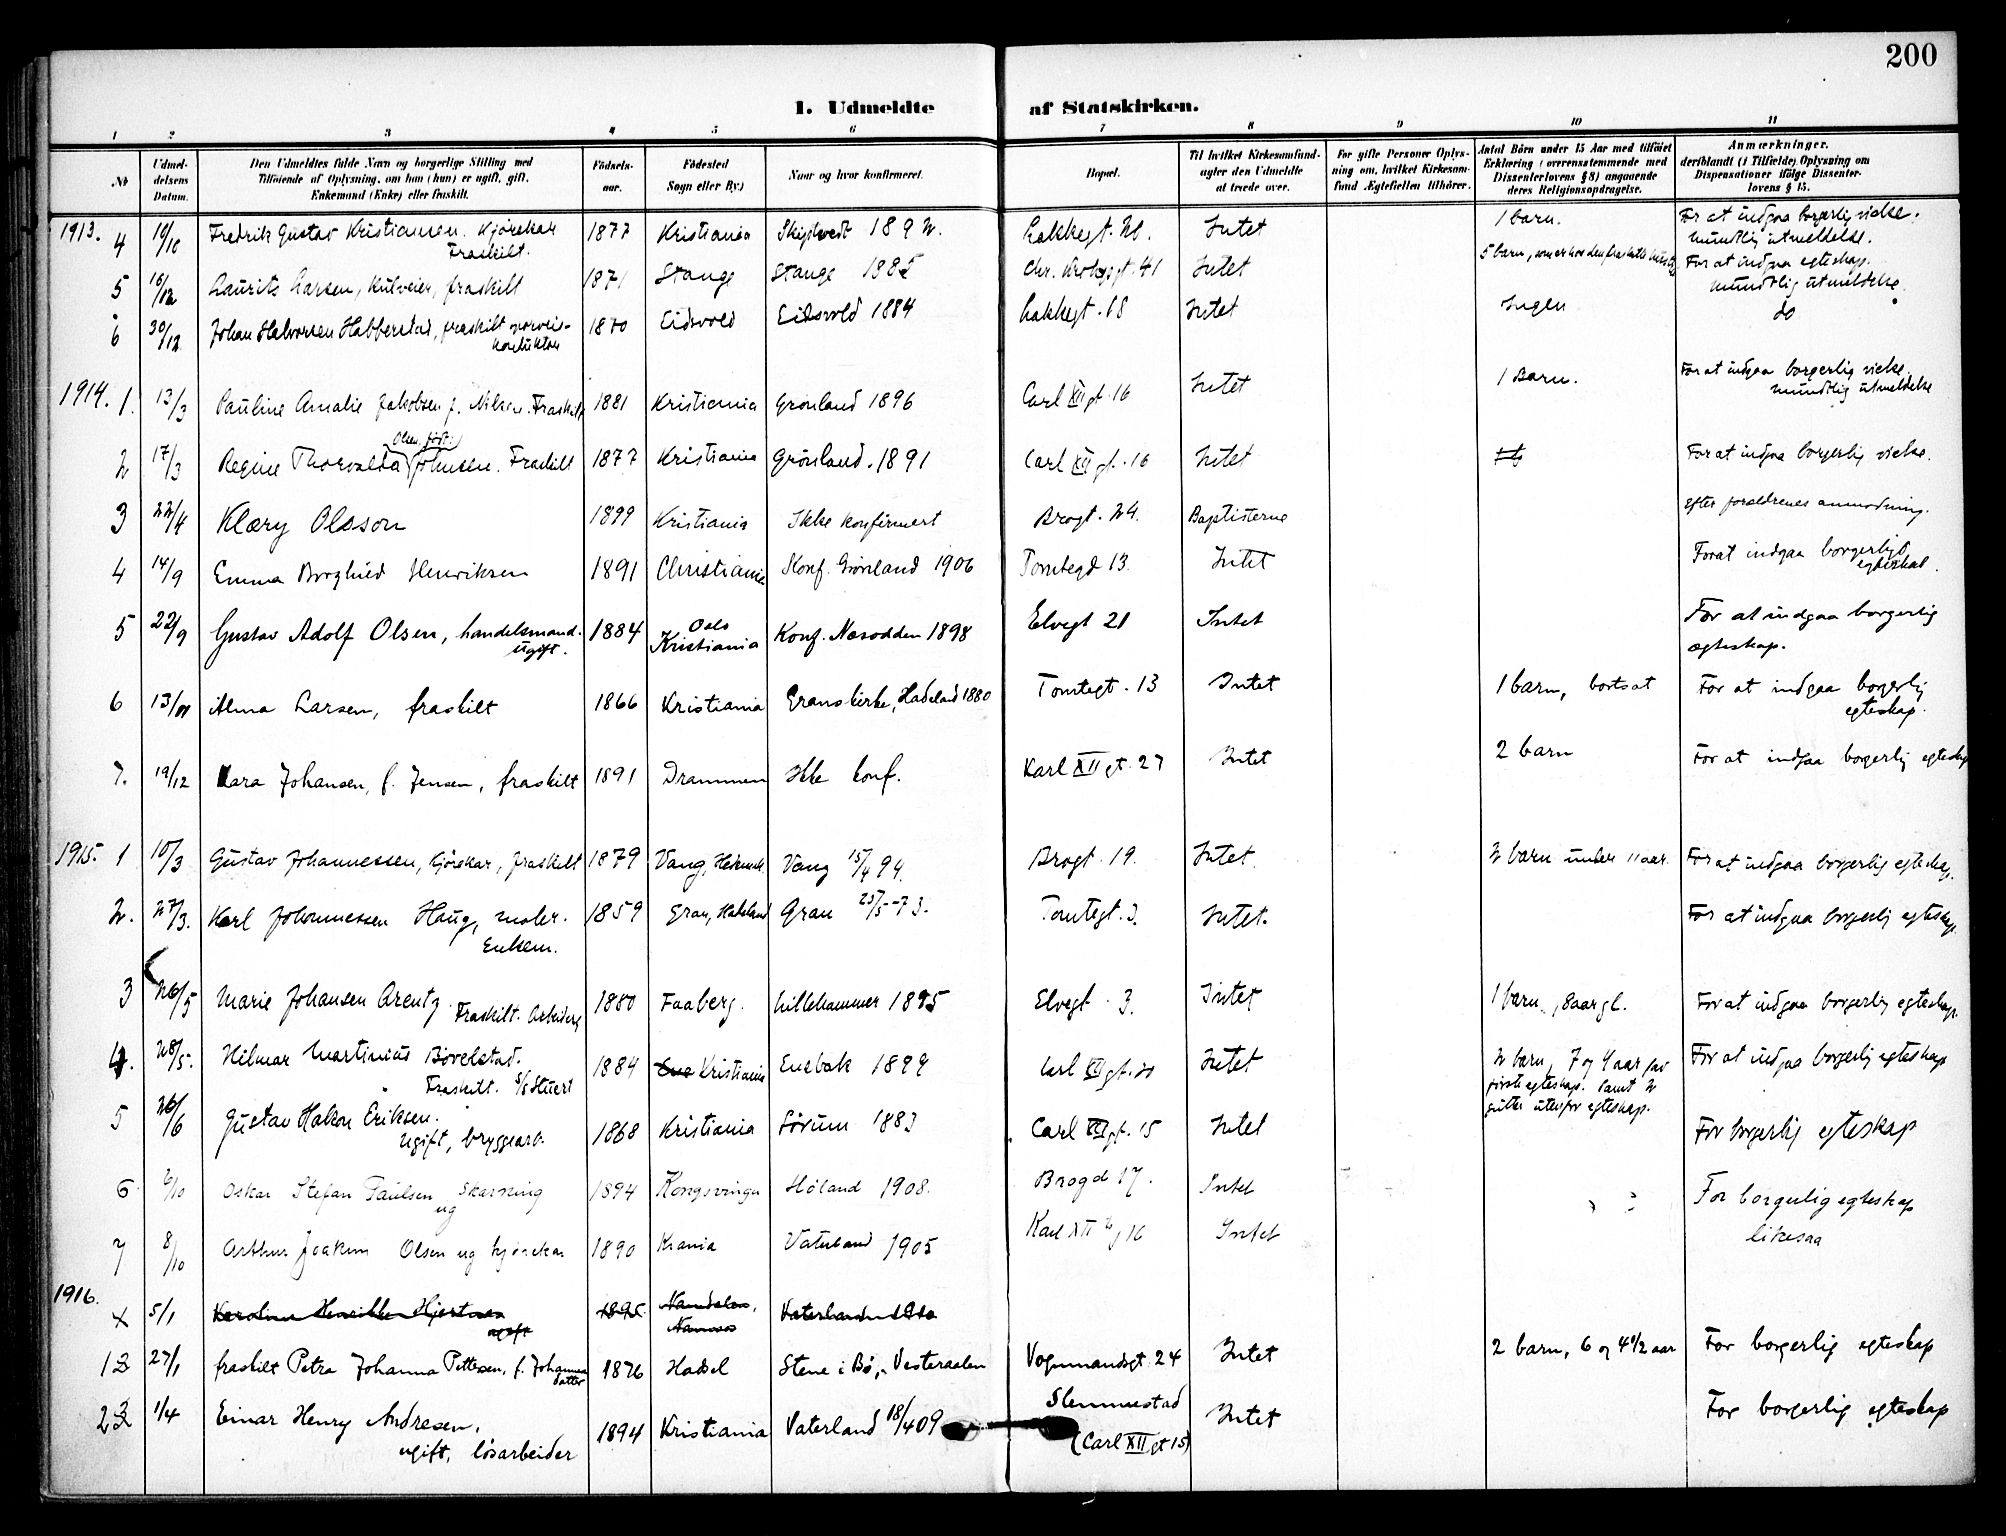 200
1. Udmeldte af Statskirken.
1 2 3 4 5 6 7 8 9 10 11
No
Udmel-
delsens
Datum.
Den Udmeldtes fulde Navn og borgerlige Stilling med
Tilföiende af Oplysning, om han (hun) er ugift, gift,
Enkemand (Enke) eller fraskilt.
Födsels-
aar.
Födested
Sogn eller By.)
Naar og hvor konfirmeret.
Bopæl.
Til hvilket Kirkesamfund
agter den Udmeldte
at træde over.
For gifte Personer Oplys-
ning om, hvilket Kirkesam-
fund Ægtefællen tilhörer.
Antal Börn under 15 Aar med tilföiet
Erklæring (overensstemmende med
Dissenterlovens § 8) angaaende
deres Religionsopdragelse.
Anmærkninger,
deriblandt (i Tilfælde) Oplysning om
Dispensationer ifölge Dissenter-
lovens § 15.
1913. 4 10/10 Fredrik Gustav Kristiansen. Kjörekar 1877 Kristiania 189 Intet 1 barn. For at indgaa borgerlig vielse.
Fraskilt. mundtlig utmeldelse.
5 16/12 Laurits Larsen, fraskilt 1871 Stange Stange 1885 41 Intet 5 barn, For at indgaa egteskap.
mundtlig utmeldelse.
6 30/12 Johan Halvorsen fraskilt 1870 Eidsvold Eidsvold 1884 Lakkegt. 18 Intet Ingen do
1914. 1. 13/3 Pauline Amalie Jakobsen f. Nilsen. Fraskilt 1881 Kristiania Grønland 1896 Carl XII gt. 16 Intet 1 Barn. For at indgaa borgerlig vielse
mundtlig utmeldelse
Olsen född:
2 17/3 Regine Thorvalda Johnsen. Fraskilt 1877 Kristiania Grønland. 1891 Carl XII gt. 16 Intet For at indgaa borgerlig vielse.
3 22/4 Klæry Olsson 1899 Kristiania Ikke konfirmert Brogt. 24. Baptisterne efter foreldrenes anmodning.
4 14/9 Emma Borghild Henriksen 1891 Christiania Konf. Grønland 1906 Tomtegd 13. Intet Forat indgaa borgerligt
egteskab.
5 22/9 Gustav Adolf Olsen, handelsmand. 1884 Oslo Kristiania Konf. Nesodden 1898 Elvegt 21 Intet For at indgaa borgerlig
ugift. ægteskap.
6 13/11 Alma Larsen, fraskilt 1866 Kristiania Grans kirke, Hadeland 1880 Tomtegt. 13 Intet 1 barn, bortsat For at indgaa bogerlig
egteskap.
7. 19/12 Klara Johansen, f. Jensen, fraskilt 1891 Drammen Ikke konf. Karl XII gt. 27 Intet 2 barn For at indgaa bogerlig egteskap
1915. 1 10/3 Gustav Johannessen, kjörekar, fraskilt 1879 Vang, Hedemark. Vang 15/4 94. Brogt. 19. Intet. 2 barn under 11 aar. For at indgaa borgerlig egteskap.
2. 27/3. Karl Johannessen Haug, maler. 1859 Gran, Hadeland Gran 25/5 -73. Tomtegt. 3. Intet. For at indgaa borgerlig egteskap.
Enkem.
3 26/5 Marie Johansen Arentz 1880 Faaberg. Lillehammer 1895 Elvegt. 3. Intet 1 barn, 8 aar gl. For at indgaa borgerlig egteskap.
Fraskilt.
4. 28/5. Hilmar Martinius 1884 Kristiania Enebak 1899 Carl XII gt. 20 Intet 2 barn, 7 og 4 aar fra For at indgaa borgerlig egteskap
Fraskilt. S/S Stuert første egteskap. samt 2
gutter utenfor egteskap.
5 26/6 Gustav Hakon Eriksen. 1868 Kristiania Sørum 1883 Carl XII gt. 15 Intet For borgerlig egteskap
ugift, bryggearb.
6 /10 Oskar Stefan Paulsen 1894 Kongsvinger Høland 1908. Brogd 17. Intet For borgerlig egteskap
ug
7 8/10 Arthur Joakim Olsen ug kjørekar 1890 Krania Vaterland 1905 Karl XII g 16 Intet likesaa
1916.
5/1 Karoline Henrikke 1895 Namdalen,
ugift Namsos
1 2 27/1 fraskilt Petra Johanna Pettersen, f. Johanna 1876 Hadsel Stene i Bø, Vesteraalen Vognmandsgt. 24 Intet 2 barn, 6 og 4 1/2 aar For borgerlig egteskap
datter
2 3 1/4 Einar Henry Andresen, 1894 Kristiania Vaterland 18/4 09 Slemmestad Intet For borgerlig egteskap
ugift, løsarbeider (Carl XII gt 15)